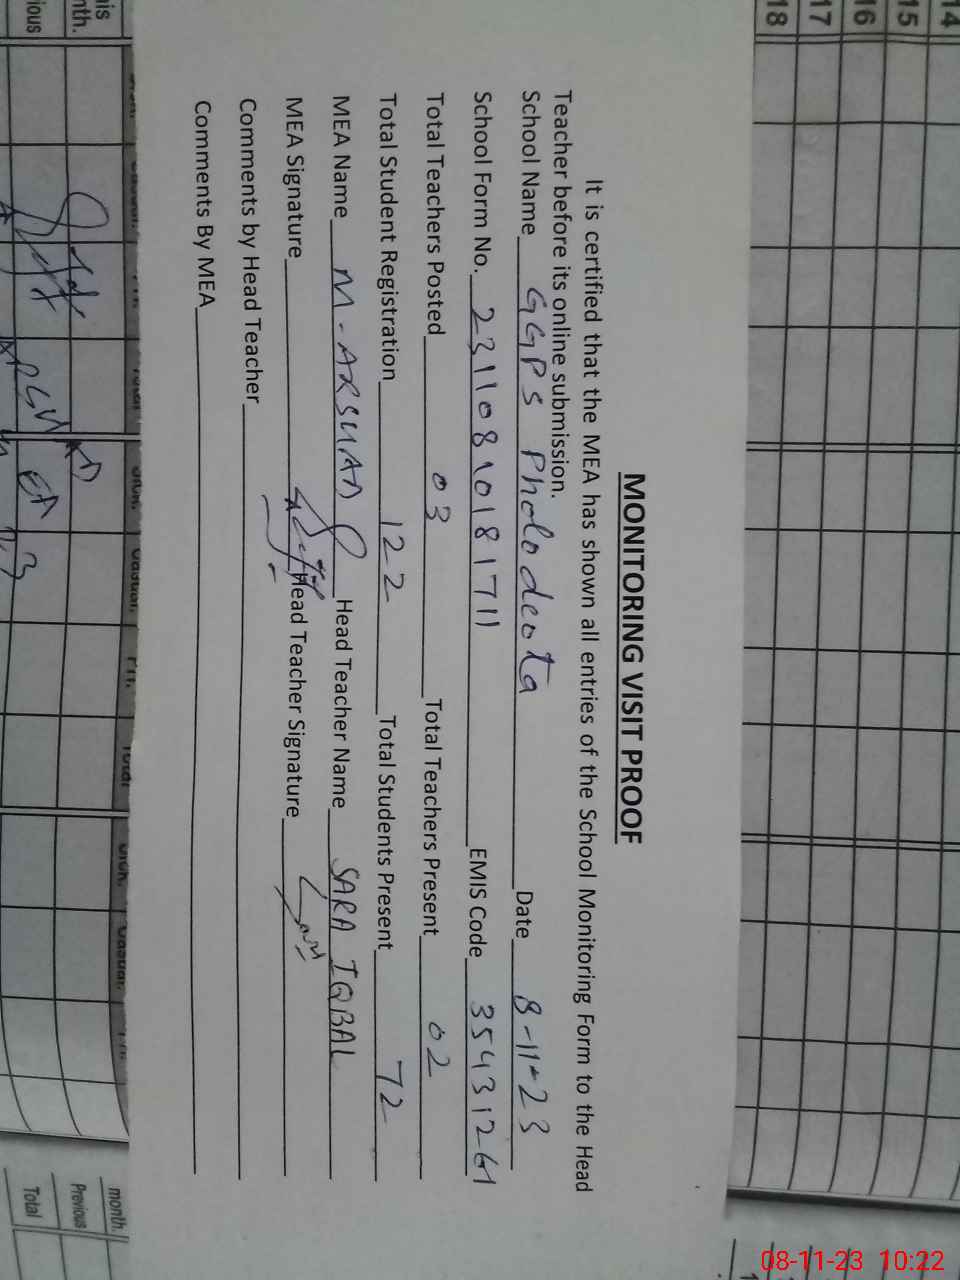 MONITORING VISIT PROOF
It is certified that the MEA has shown all entries of the School Monitoring Form to the Head
Teacher before its online submission.
School Name GGPS Pholodeota Date 8-11-23
School Form No. 23110810181711 EMIS Code 35431261
Total Teachers Posted 03 Total Teachers Present 02
Total Student Registration 122 Total Students Present 72
MEA Name M-ARSHAD Head Teacher Name SARA IQBAL
MEA Signature Head Teacher Signature
Comments by Head Teacher
Comments By MEA
14
15
16
17
18
month.
Previous
Total
08-11-23 10:22